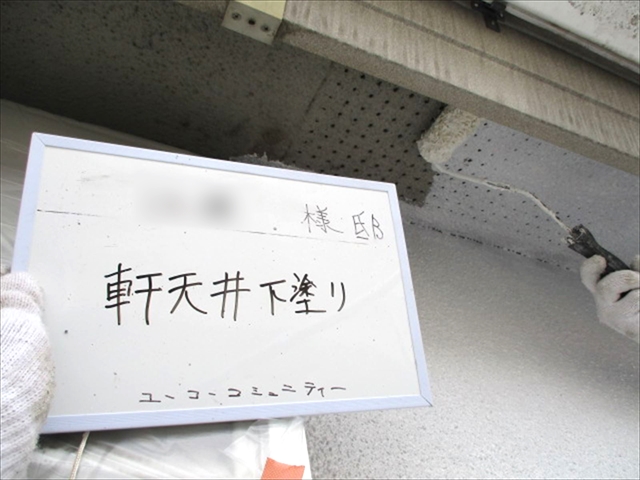 様邸
軒天井下塗り
ユーコーコミュニティー